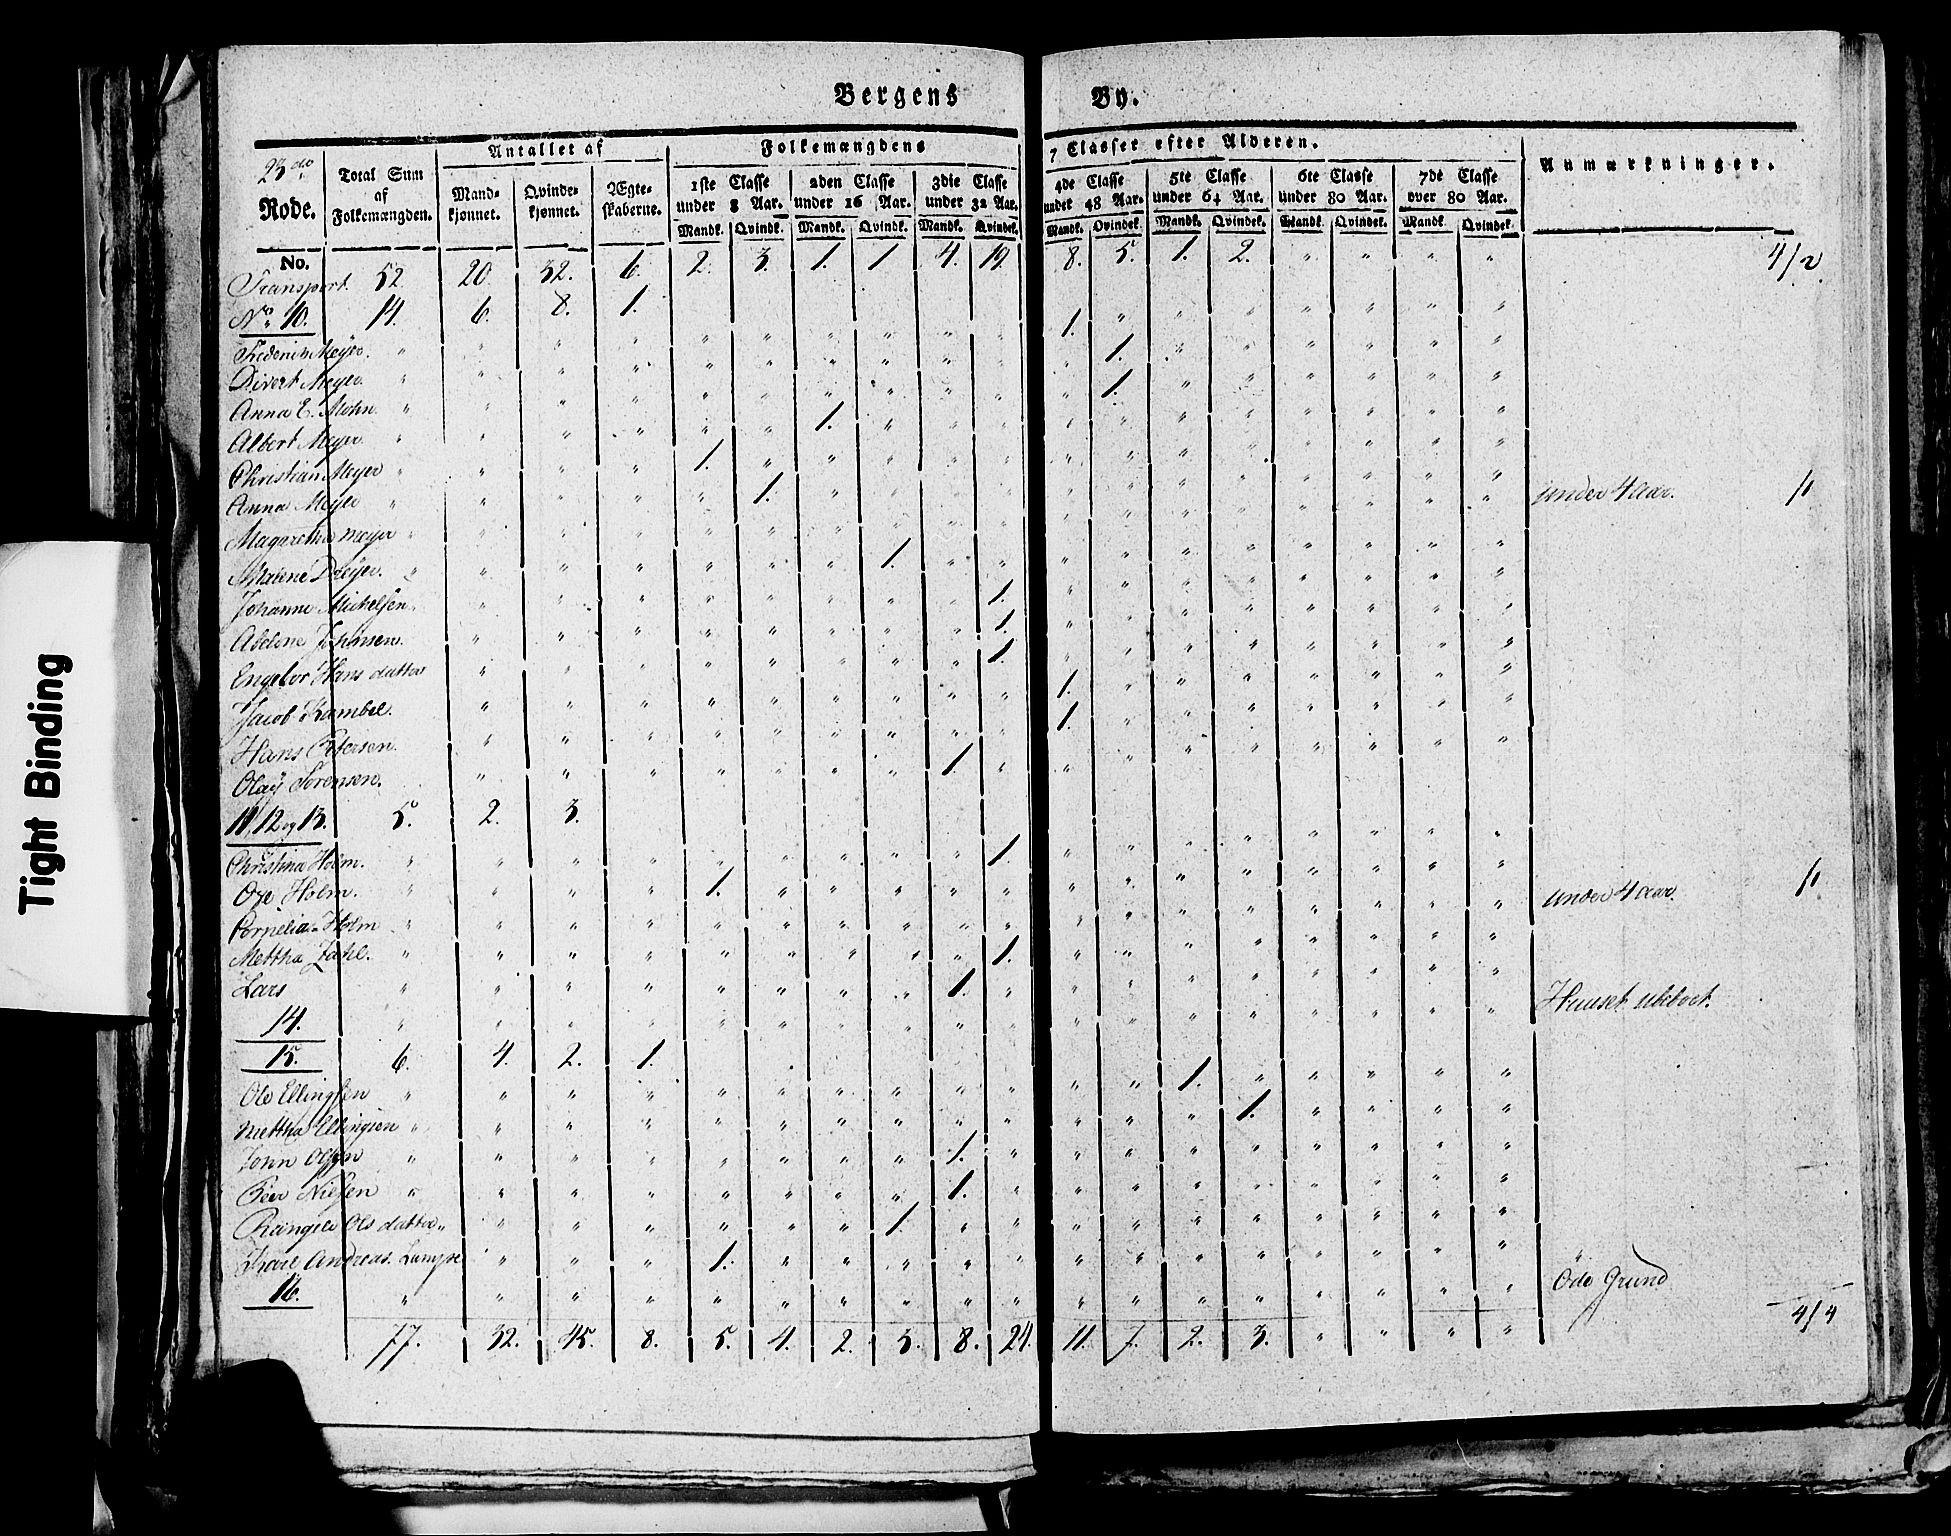 Bergens By.
23de Rode.
Total Sum af Folkemængden.
Antallet af
Mandkjønnet.
Qvindekjønnet.
Ægteskaberne.
Folkemængdens 7 Classer efter Alderen.
1ste Classe under 8 Aar.
2den Classe under 16 Aar.
3die Classe under 32 Aar.
4de Classe under 48 Aar.
5te Classe under 64 Aar.
6te Classe under 80 Aar.
7de Classe over 80 Aar.
Anmærkninger.
Mandk. Qvindk. Mandk. Qvindk. Mandk. Qvindek. Mandk. Qvindek. Mandk. Qvindek. Mandk. Qvindek. Mandk. Qvindek.
No.
Transport. 52 20. 32. 6. 2. 3. 1. 1 4. 19. 8. 5. 1. 2. " " " " 4/2
No 10. 14. 6. 8. 1.
Frederich Meyer. 1.
Divert Meyer. 1.
Anna E. Mohn. 1.
Albert Meyer. 1.
Christian Meyer 1.
Anna Meyer 1. under 4 aar. 1/
Magaretha Meyer
Malene Dreyer. 1.
Johanne Michelsen 1.
Abelone Johansen. 1.
Engelbr Hans datter 1.
Jacob Kambel. 1.
Hans Petersen. 1.
Olaj Sørensen. 1.
11, 12 og 13. 5. 2. 3.
Christina Holm. 1.
Ole Holm. 1. under 4 aar. 1/
Cornelia Holm
Mettha Zahl. 1.
Lars 1.
14. Huuset ubeboet.
15. 6. 4. 2. 1.
Ole Ellingsen 1.
Mettha Ellingsen 1.
John Olsen 1.
Peer Nilsen 1.
Rangele Ols datter 1.
Karl Andreas Lampe 1.
16. Öde Grund
77. 32. 45. 8. 5. 4. 2. 3. 8. 24. 11. 7. 2. 3. " " " " 4/4
Tight Binding